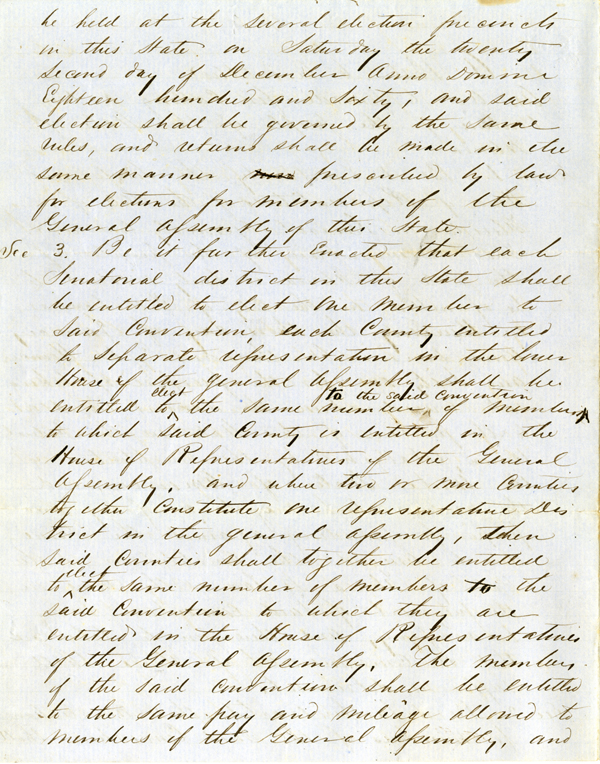 be held at the several election precincts
in this State on Saturday the twenty
Second day of December Anno Domini
Eighteen hundred and Sixty, and said
election shall be governed by the same
rules, and returns shall be made in the
same manner prescribed by law
for elections for members of the
General Assembly of this State.
Sec 3. Be it further Enacted that each
Senatorial district in this State shall
be entitled to elect one member to
Said Convention, each County entitled
to separate representation in the lower
House of the general assembly shall be
elect to the said convention
entitled to the same number of members
to which said County is entitled in the
House of Representatives of the General
Assembly and where two or more Counties
together Constitute one representative Dis
trict in the general assembly, then
said Counties shall together be entitled
elect
to the same number of members to the
said Convention to which they are
entitled in the House of Representatives
of the General Assembly. The members
of the said convention shall be entitled
to the same pay and mileage allowed to
members of the General Assembly, and